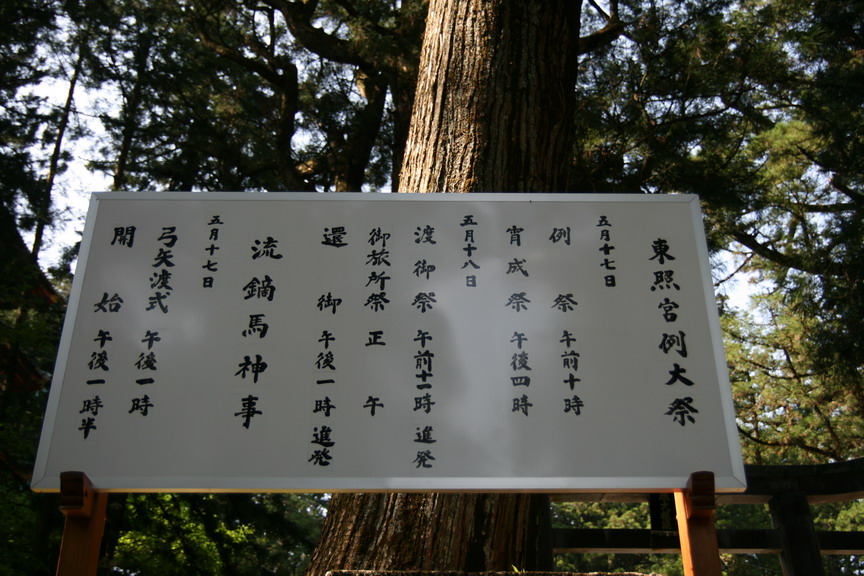 東照宮例大祭
五月十七日
例祭 午前十時
宵成祭 午後四時
五月十八日
渡御祭 午前十一時 進発
御旅所祭 正午
還御 午後一時 進発
流鏑馬神事
五月十七日
弓矢渡式 午後一時
開始 午後一時半